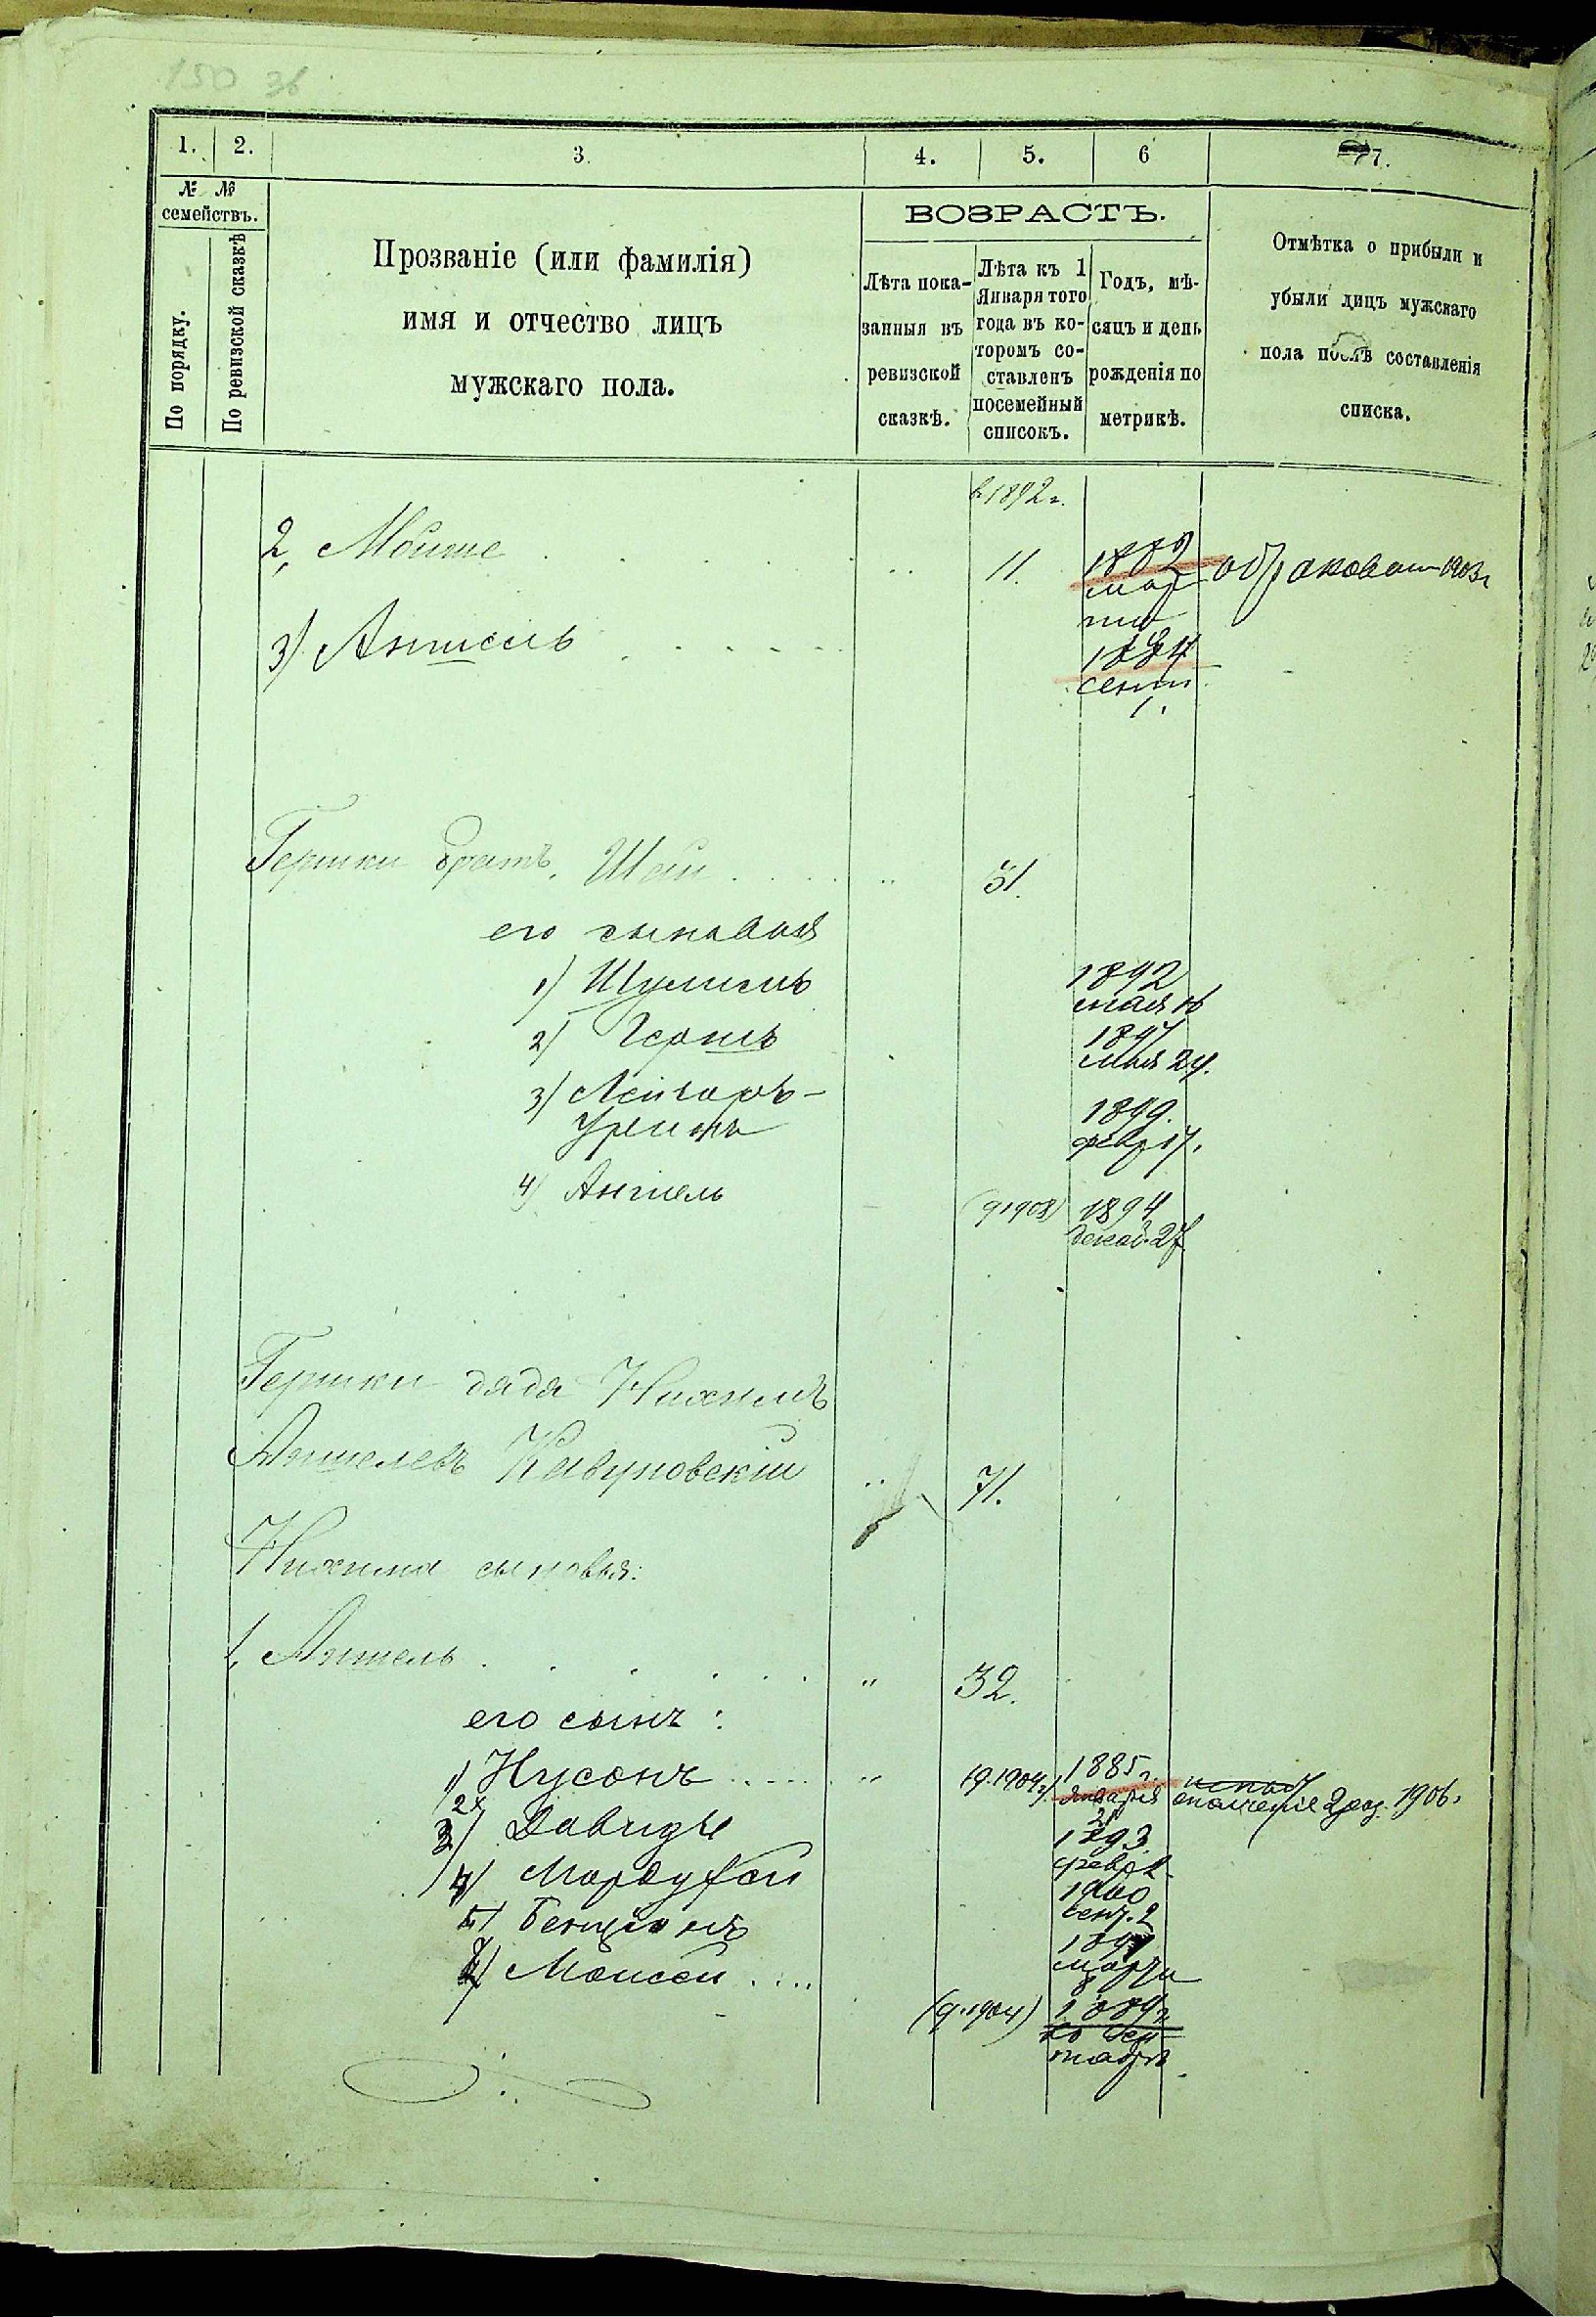 150 36
1. 2. 3. 4. 5. 6 7.
№ №
семействъ.
По порядку.
По ревизской сказкѣ
Прозваніе (или фамилія)
имя и отчество лицъ
мужскаго пола.
ВОЗРАСТЪ.
Лѣта пока-
занныя въ
ревизской
сказкѣ.
Лѣта къ 1
Января того
года въ ко-
торомъ со-
ставленъ
посемейный
списокъ.
Годъ, мѣ-
сяцъ и день
рожденія по
метрикѣ.
Отмѣтка о прибыли и
убыли лицъ мужскаго
пола послѣ составленія
списка.
в 1892 г.
2, Мошке 11. 1882 обракован 1903 г
мар
та
3) Аншель 1884
сент
1.
Гершки братъ, Шай 51.
его сыновья
1) Шулимъ 1892
мая 16
2) Гершъ 1897
мая 24.
3) Лейзоръ- 1899.
февр 17.
4) Аншель (91908) 1894
декаб. 27
Гершки дядя Нахимъ
Аншелевъ Кавуновскій 71.
Нахима сыновья:
1, Аншель 32.
его сынъ:
1) Нусонъ (9.1904 г) 1885 г.
января
2
ополченіе 2 раз. 1906.
3) Давидъ 1893
февр 2
4) Мордухай 1900
сент. 2
5) Бенціонъ 1897
марта
8
Моисей (9.1904) 1889 г
сен
тября